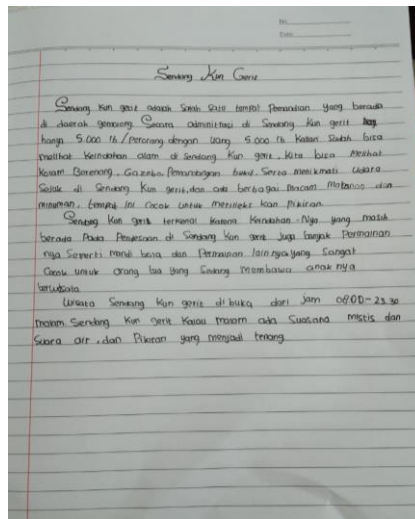 No.
Date.
Sendang Kun Gerit
Sendang Kun gerit adalah Salah Satu tempat Pemandian yang berada
di daerah gemolong. Secara administrasi di Sendang Kun gerit
hanya 5.000 rb / Perorang dengan uang 5.000 rb Kalian Sudah bisa
melihat Keindahan alam di Sendang Kun gerit, Kita bisa melihat
Kolam Berenang, Gazebo, Pemandangan bukit, Serta menikmati Udara
Sejuk di Sendang Kun gerit, dan ada berbagai macam Makanan dan
minuman, tempat ini Cocok untuk kan Pikiran.
Sendang Kun gerit terkenal karena Keindahan-Nya yang masih
berada Pada Pedesaan di Sendang Kun gerit Juga banyak Permainan
nya Seperti mandi bola dan Permainan lain nya yang Sangat
Cocok untuk orang tua yang Sedang Membawa anak nya
berwisata.
Wisata Sendang Kun gerit di buka dari Jam 08.00-23.30
malam. Sendang Kun gerit Kalau malam ada Suasana mistis dan
Suara air, dan Pikiran yang menjadi tenang